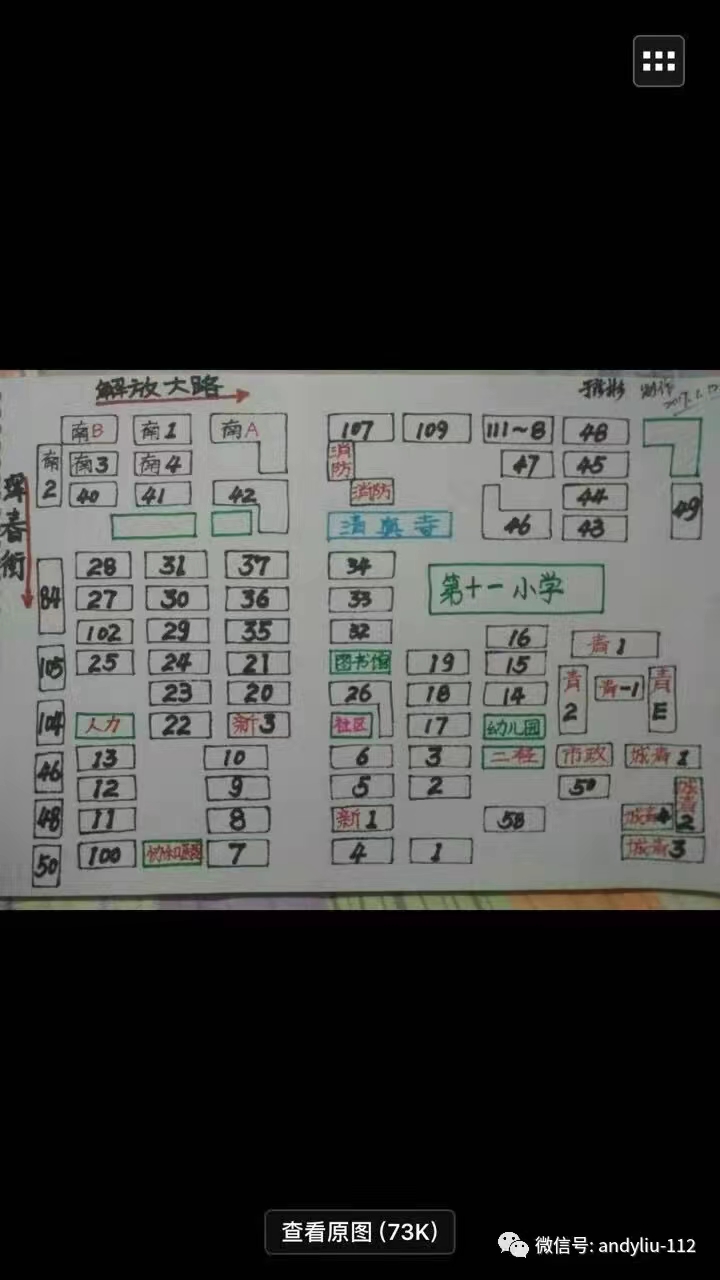 解放大路
制作
2017.1.
珲春街
南B 南1 南A 107 109 111~8 48
南2 南3 南4 消防 47 45
40 41 42 消防 44 49
清真寺 46 43
84 28 31 37 34 第十一小学
27 30 36 33
102 29 35 32 16 青1
105 25 24 21 图书馆 19 15 青2 青-1 青E
23 20 26 18 14
104 人力 22 新3 社区 17 幼儿园
46 13 10 6 3 二轻 市政 城青1
12 9 5 2 50 城青2
48 11 8 新1 58 城青4
50 100 协和医院 7 4 1 城青3
查看原图 (73K)
微信号: andyliu-112